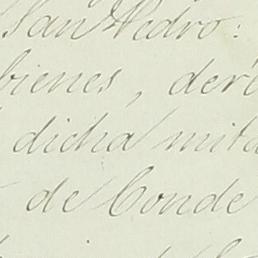 San Pedro:
bienes, dere
dicha mita
de Conde